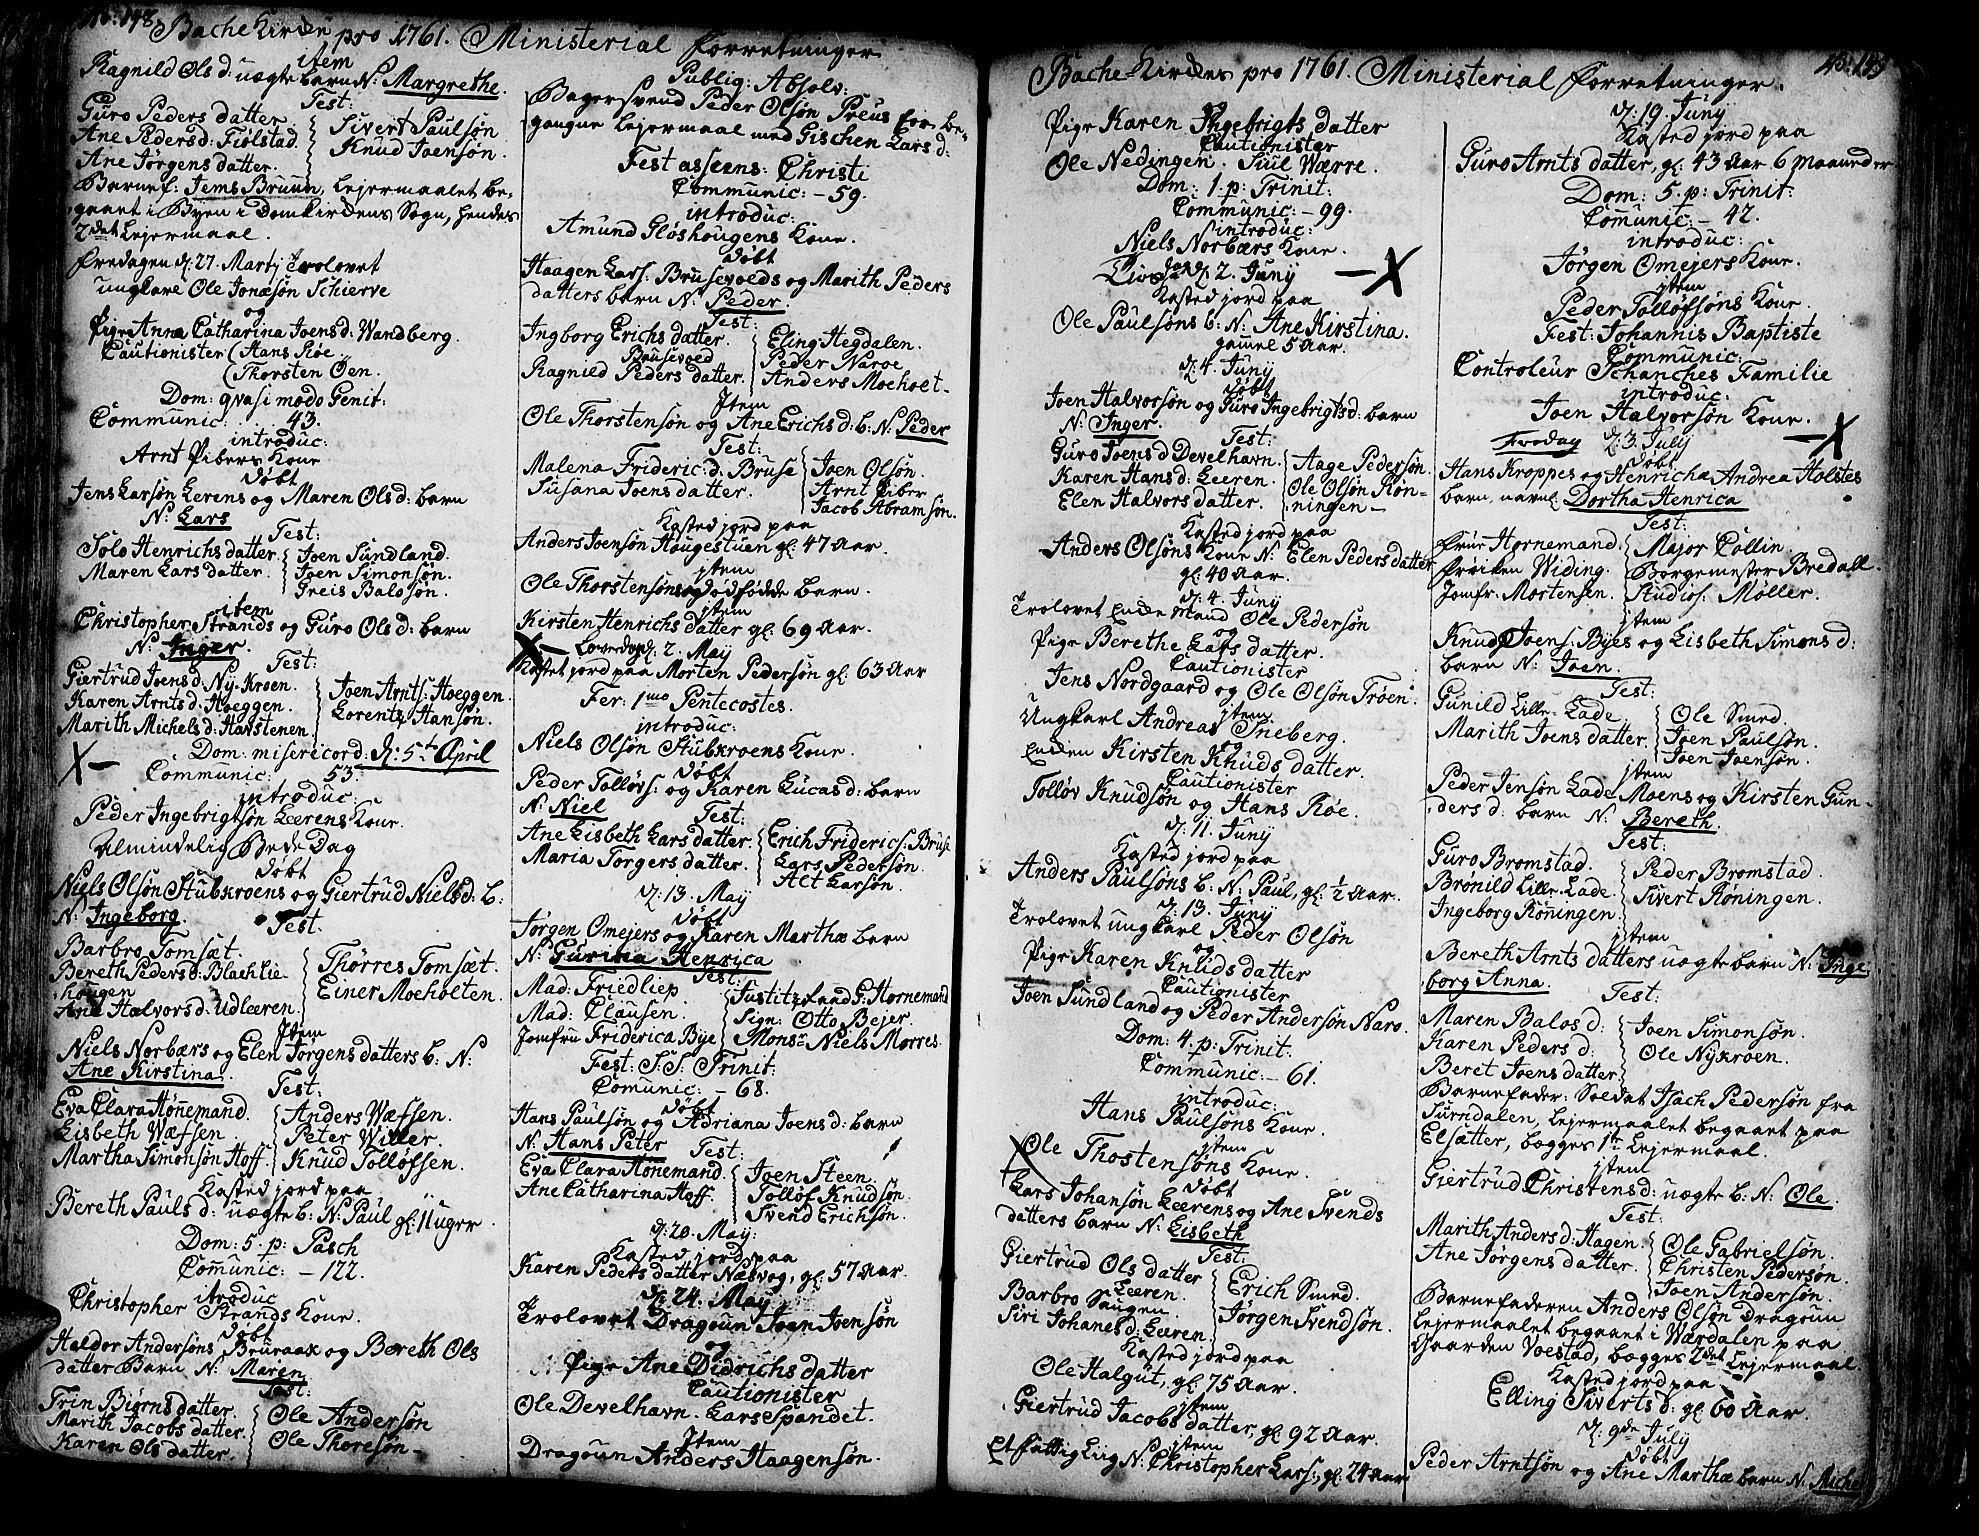 148
Bache Kirche pro 1761. Ministerial Forretninger
item
Ragnild Ols d: uægte barn N: Margrethe.
Test:
Guro Peders datter.
Ane Pedersd: Fiølstad.
Ane Jørgens datter.
Sivert Paulsøn
Knud Joensøn.
Barnef: Jems Bruun, Lejermaalet be-
gaaet i Byen i Domkirchens Sogn, hendes
2det Lejermaal.
Fredagen d: 27. Martj Trolovet
ungkarl Ole Jonasøn Schierve
og
Pige Anna Catharina Joens d: Wandberg.
Cautionister (Hans Røe
(Thorsten Øen.
Dom: qvasi modo Genit:
Communic: 43.
introduc:
Arnt Pibers Kone
døbt
Jens Larsøn Lerens og Maren Ols d: barn
N: Lars
Test:
Solo Henrichs datter.
Maren Lars datter.
Joen Sundland.
Joen Simonsøn.
Greis Balosøn.
item
Christopher Strands og Guro Ols d: barn
N: Inger.
Test:
Giertrud Joens d: Ny-Kroen.
Karen Arnts d: Hoeggen.
Marith Michels d: Havstenen
Joen Arnts: Hoeggen
Lorentz Hansøn.
X- Dom: misericord: d: 5t April
Communic: 53.
introduc:
Peder Ingebrigtsøn Leerens Kone.
Almindelig Bede Dag
døbt
Niels Olsøn Stubkroens og Giertrud Niels d: b:
N: Ingeborg.
Test.
Barbro Tomsæt.
Bereth Peders d: Blachlie
hougen
Ane Halvors d: Udleeren.
Thorres Tomsæt.
Einer Moeholten.
Item
Niels Norbærs og Elen Jørgens datters b: N:
Ane Kirstina.
Test:
Eva Clara Hønemand.
Lisbeth Wæfsen
Martha Simonsøn Hoff.
Anders Wæfsen.
Peter Willer.
Knud Tollofsen.
Kasted jord paa
Bereth Pauls d: uægte b: N: Paul gl: 11 uger.
Dom: 5. p: Pasch
Comunic: - 122.
introduc
Christopher Strands Kone.
døbt
Haldor Andersøns Bruraak og Bereth Ols
datter Barn N: Maren
Test:
Trin Biørns datter.
Marith Jacobs datter.
Karen Ols datter.
Ole Andersøn
Ole Thoresøn-
Publig: Absolv:
Bagersvend Peder Olsøn Preus for be-
gangne Lejermaal med Gischen Lars d:
Fest ascens: Christi
Communic: - 59.
introduc:
Amund Gløshougens Kone.
døbt
Haagen Lars: Brusevoeds og Marith Peders
datters barn N: Peder.
Test:
Ingborg Erichs datter.
Brusevoed
Ragnild Peders datter.
Eling Hegdalen.
Peder Naroe.
Anders Moeholt-
Item
Ole Thorstensøn og Ane Erichs d: b: N: Peder
Test:
Malena Frideric: d: Bruse
Susana Joens datter.
Joen Olsøn.
Arnt Piber
Jacob Abramsøn.
Kasted jord paa
Anders Joensøn Hougestuen gl: 47 Aar.
jtem
Ole Thorstensøns dødfødde barn.
jtem
Kirsten Henrichs datter gl: 69 Aar.
X- Løverdag d: 2. May
Kastet jord paa Morten Pedersøn gl: 63 Aar
Fer: 1mo Pentecostes.
introduc:
Niels Olsøn Stubkroens Kone.
døbt
Peder Tolløvs: og Karen Lucas d: barn
N: Niel
Test:
Ane Lisbeth Lars datter.
Maria Torgers datter.
Erich Frideric: Bruse
Lars Pedersøn.
Alt Larsøn.
d: 13. May
døbt
Jørgen Omejers og Karen Marthæ barn
N: Gurina Henrica
Test:
Mad: Friedliep
Mad: Clausen.
Jomfru Friderica Bye
Justitz raad G: Hornemand
Sign: Otto Bejer.
Monsr Niels Morres.
Fest: S.S. Trinit:
Comunic: - 68.
døbt
Hans Paulsøn og Adriana Joens d: barn
N: Hans Peter
Test:
Eva Clara Hønemand.
Ane Catharina Hoff.
Joen Steen.
Tollof Knudsøn.
Svend Erichsøn.
d: 20. May:
Kasted jord paa
Karen Peders datter Næsvog, gl: 57 Aar.
d: 24. May
Trolovet Dragoun Joen Joensøn
og
Pige Ane Didrichs datter
Cautionister
Ole Develhavn. Lars Spandet.
Item
Dragoun Anders Haagensøn.
Bache Kirches pro 1761. Ministerial Forretninger.
og
Pige Karen Ingebrigts datter
Cautionister
Ole Nedingen. Siul Wærre.
Dom: 1. p: Trinit:
Communic: - 99.
introduc:
Niels Norbærs Kone.
d: 2. Juny -X
Kasted jord paa
Ole Paulsøns b: N: Ane Kirstina.
gamel 5 Aar.
d: 4. Juny
døbt
Joen Halvorsøn og Guro Ingebrigts d: barn
N: Inger.
Test:
Guro Joens d Develhavn.
Karen Hans d: Leeren.
Elen Halvors datter.
Aage Pedersøn.
Ole Olsøn Røn-
ningen-
Kasted jord paa
Anders Olsøns Kone N: Elen Peders datter
gl: 40 Aar.
d: 4. Juny
Trolovet Enche Mand Ole Pedersøn
og
Pige Berethe Lars datter.
Cautionister
Jens Nordgaard og Ole Olsøn Trøen.
jtem
Ungkarl Andreas Sneberg.
og
Enchen Kirsten Knuds datter.
Cautionister
Tolløv Knudsøn og Hans Røe.
d: 11. Juny
Kasted jord paa
Anders Paulsøns b: N: Paul, gl: ½ Aar.
d: 13. Juny
Trolovet ungkarl Peder Olsøn
og
Pige Karen Knuds datter
Cautionister
Joen Sundland og Peder Andersøn Naro.
Dom: 4. p: Trinit:
Communic: - 61.
introduc:
Hans Paulsøns Kone.
jtem
Ole Thostensøns Kone.
døbt
Lars Johansøn Leerens og Ane Svends
datters barn N: Lisbeth
Test:
Giertrud Ols datter
Leeren.
Barbro Saugen
Siri Johanes d: Leeren.
Erich Smed.
Jørgen Svendsøn.
Kasted jord paa
Ole Halgut, gl: 75 Aar.
jtem
Giertrud Jacobs datter, gl: 92 Aar.
jtem
Et fattig Liig N: Christopher Lars:, gl: 24 aar
d: 19. Juny
Kasted jord paa
Guro Arnts datter, gl: 43 Aar 6 maaneder
Dom: 5. p: Trinit:
Comunic: - 42.
introduc:
Jørgen Omejers Kone.
jtem
Peder Tolløfsøns Kone.
Fest: Johannis Baptiste
Communic:
Controleur Schanches Familie
introduc:
Joen Halvorsøn Kone.
Fredag d: 3. July -X
døbt
Hans Kroppes og Henricha Andrea Holstes
barn navnl: Dortha Henrica
Test:
Frue Hornemand.
Frøiken Widing.
Jomfr: Mortensen.
Major Collin.
Borgemester Bredall.
Studios: Møller.
jtem
Knud Joens: Byes og Lisbeth Simons d:
barn N: Joen.
Test:
Gunild Lille-Lade
Marith Joens datter.
Ole Smed.
Joen Paulsøn.
Joen Joensøn.
jtem
Peder Jensøn Lade Moens og Kirsten Gun-
ders d: barn N: Bereth.
Test:
Guro Bromstad.
Brønild Lille-Lade.
Ingeborg Røningen.
Peder Bromstad.
Sivert Røningen.
jtem
Bereth Arnts datters uægte barn N: Inge
borg Anna.
Test:
Maren Balos d:
Karen Peders d:
Beret Joens datter
Joen Simonsøn.
Ole Nykroen.
Barnefader: Soldat Isach Pedersøn fra
Surndalen, Lejermaalet begaaet paa
Elsætter, begges 1te Lejermaal.
jtem
Giertrud Christens d: uægte b: N: Ole.
Test:
Marith Anders d: Hagen.
Ane Jørgens datter.
Ole Gabrielsøn.
Christen Pedersøn.
Joen Andersøn.
Barnefaderen Anders Olsøn Dragoun
Lejermaalet begaaet i Wærdalen paa
Gaarden Voestad, begges 2det Lejermaal.
Kasted jord paa
Elling Siverts d: gl: 60 Aar.
d: 9de July
døbt
Peder Arntsøn og Ane Marthæ barn N: Michel